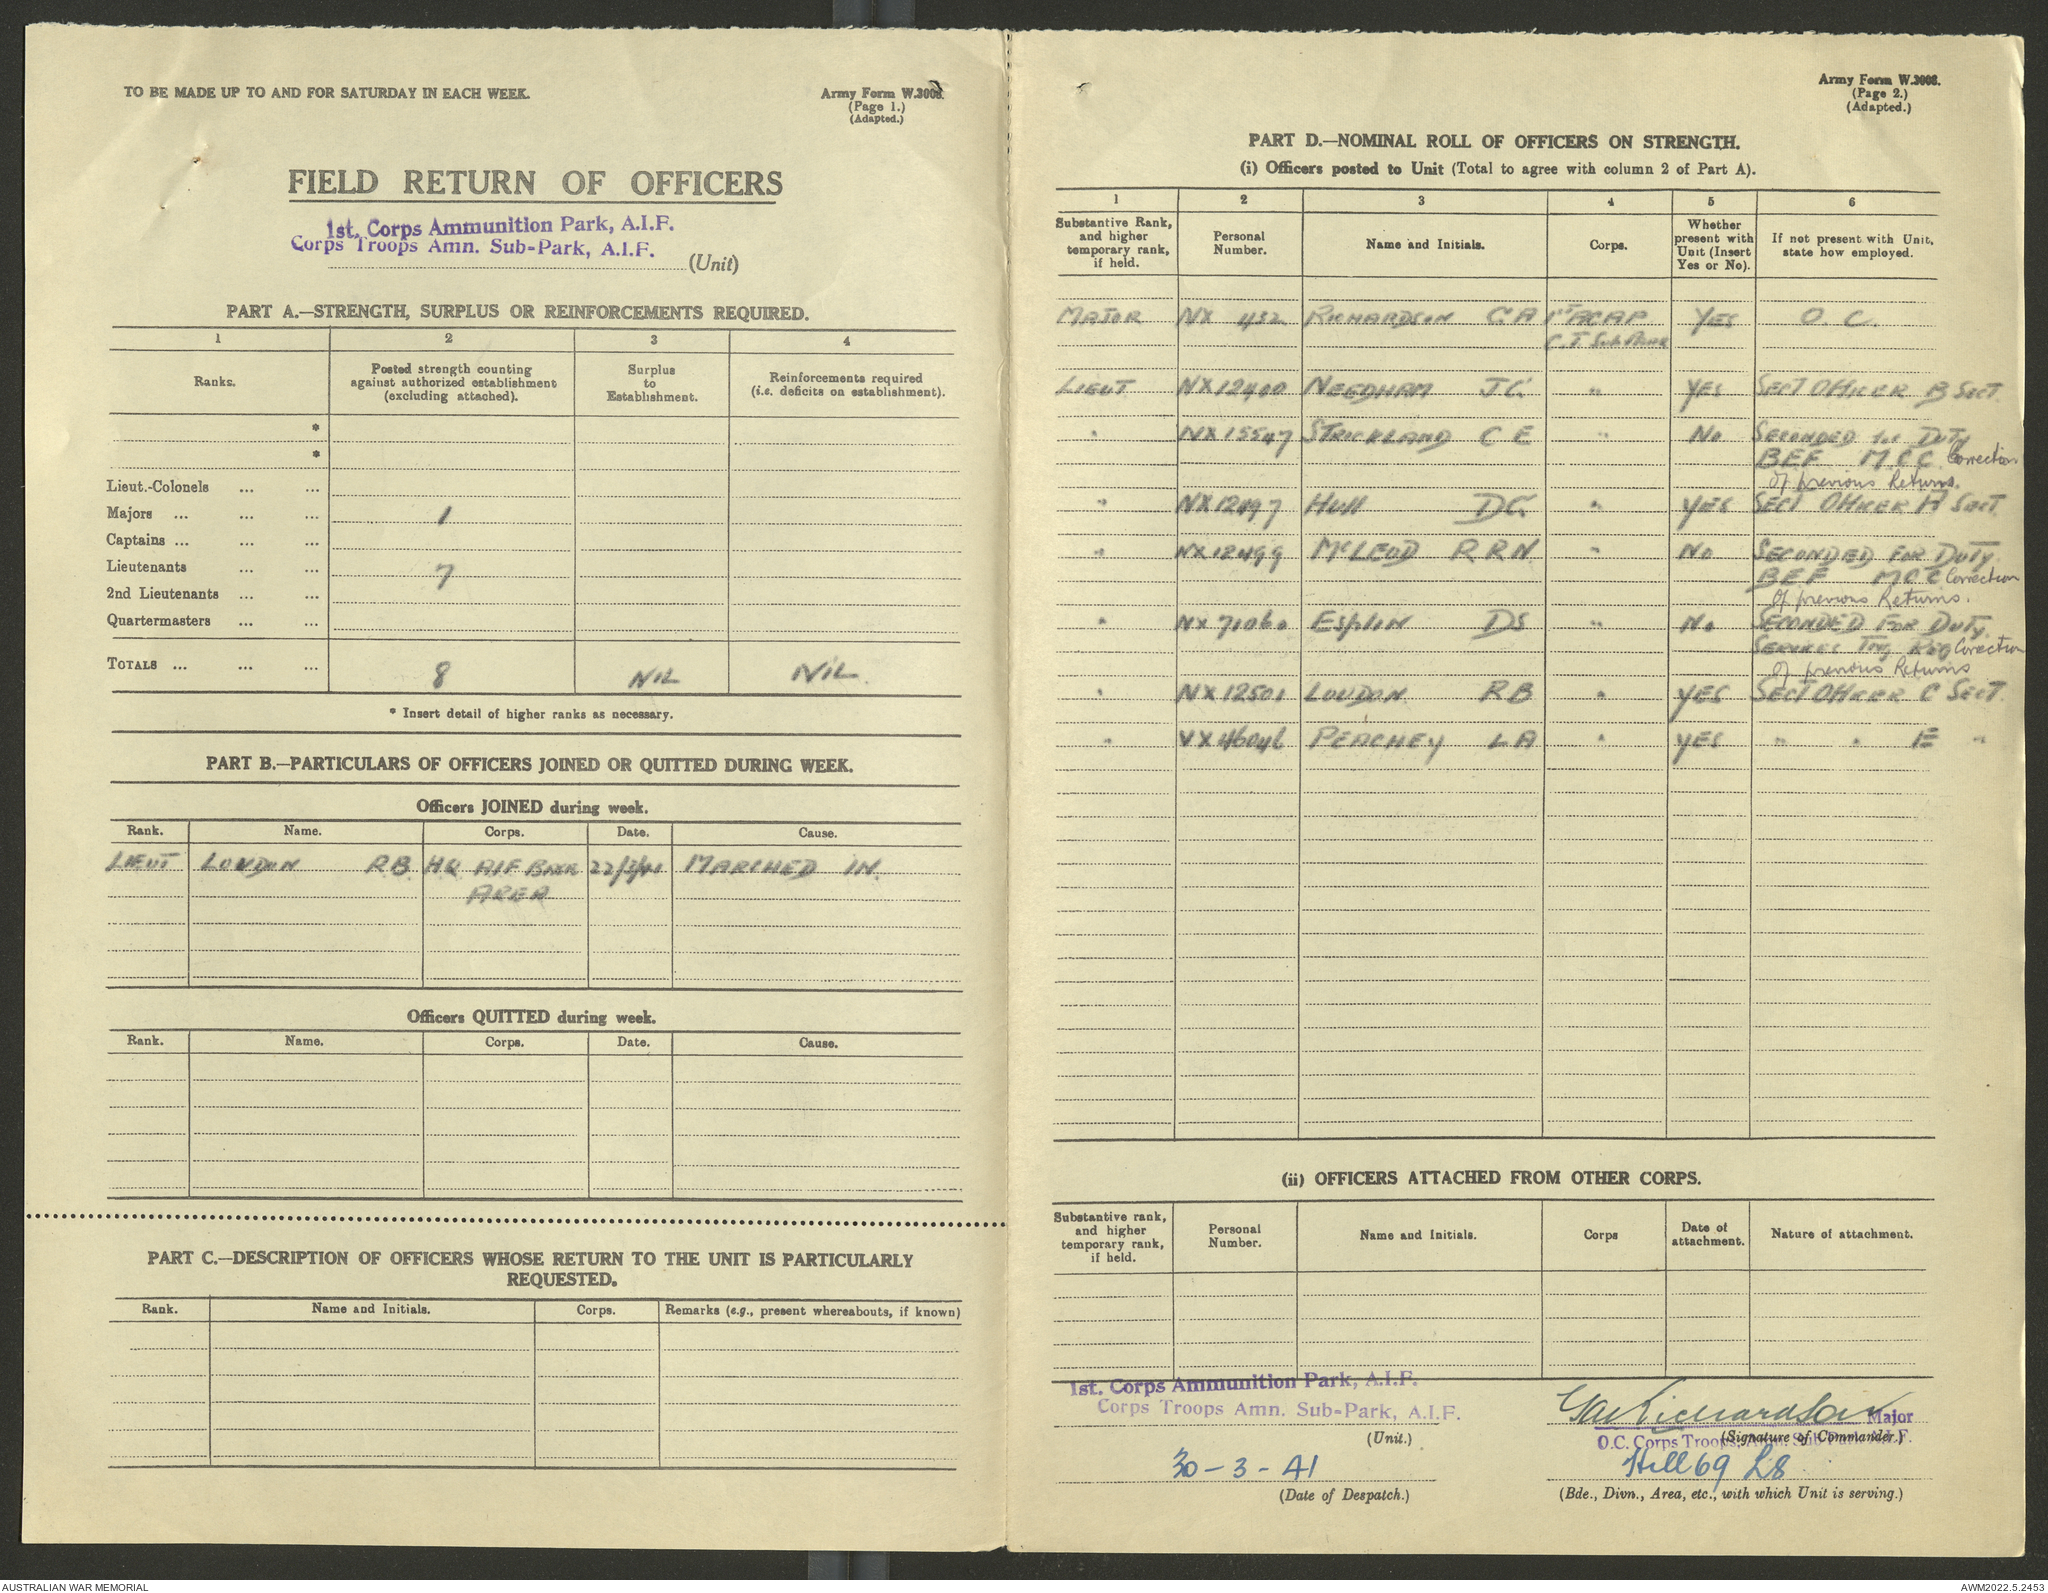 TO BE MADE UP TO AND FOR SATURDAY IN EACH WEEK.
Army Form W.3008.
(Page 1.)
(Adapted.)
FIELD RETURN OF OFFICERS
1st. Corps Ammunition Park, A.I.F.
Corps Troops Amn. Sub-Park, A.I.F.
(Unit)
PART A.—STRENGTH, SURPLUS OR REINFORCEMENTS REQUIRED.
1 2 3 4
Ranks. Posted strength counting against authorized establishment (excluding attached). Surplus to Establishment. Reinforcements required (i.e. deficits on establishment).
*
*
Lieut.-Colonels ... ...
Majors ... ... ... 1
Captains ... ... ...
Lieutenants ... ... 7
2nd Lieutenants ... ...
Quartermasters ... ...
TOTALS ... ... ... 8 NIL NIL.
* Insert detail of higher ranks as necessary.
PART B.—PARTICULARS OF OFFICERS JOINED OR QUITTED DURING WEEK.
Officers JOINED during week.
Rank. Name. Corps. Date. Cause.
LIEUT LOUDON RB HQ AIF BASE 22/3/41 MARCHED IN.
AREA
Officers QUITTED during week.
Rank. Name. Corps. Date. Cause.
PART C.—DESCRIPTION OF OFFICERS WHOSE RETURN TO THE UNIT IS PARTICULARLY
REQUESTED.
Rank. Name and Initials. Corps. Remarks (e.g., present whereabouts, if known)
Army Form W.3008.
(Page 2.)
(Adapted.)
PART D.—NOMINAL ROLL OF OFFICERS ON STRENGTH.
(i) Officers posted to Unit (Total to agree with column 2 of Part A).
1 2 3 4 5 6
Substantive Rank, and higher temporary rank, if held. Personal Number. Name and Initials. Corps. Whether present with Unit (Insert Yes or No). If not present with Unit, state how employed.
MAJOR NX 432 RICHARDSON GA 1st ACAP YES O.C.
C.T Sub Park
LIEUT NX12400 NEEDHAM J.G. " YES SECT OFFICER B SECT.
" NX15547 STRICKLAND C E " NO SECONDED for DUTY
BEF M C C Correction
of previous Returns.
" NX12497 HULL DG. " YES SECT OFFICER A SECT.
" NX12499 McLEOD R R N " NO SECONDED FOR DUTY
BEF MCC Correction
of previous Returns.
" NX71060 ESPLIN DS " NO SECONDED FOR DUTY.
SERVICES Trng Reg Correction
of previous Returns
" NX12501 LOUDON RB " YES SECT OFFICER C SECT.
" VX46046 PEACHEY LA " YES " " E "
(ii) OFFICERS ATTACHED FROM OTHER CORPS.
Substantive rank, and higher temporary rank, if held. Personal Number. Name and Initials. Corps Date of attachment. Nature of attachment.
1st. Corps Ammunition Park, A.I.F.
Corps Troops Amn. Sub-Park, A.I.F.
(Unit.)
30-3-41
(Date of Despatch.)
GA Richardson Major
(Signature of Commander.)
O.C. Corps Troops, Amn. Sub-Park A.I.F.
Hill 69 L8
(Bde., Divn., Area, etc., with which Unit is serving.)
AUSTRALIAN WAR MEMORIAL
AWM2022.5.2453